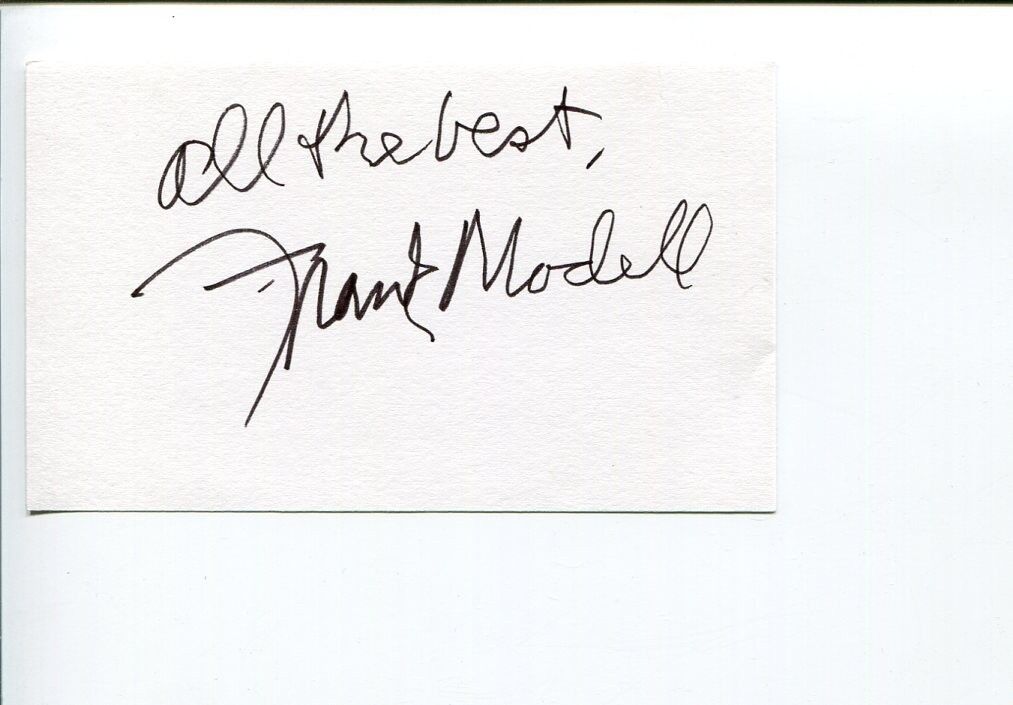 all the best,
Frank Modell